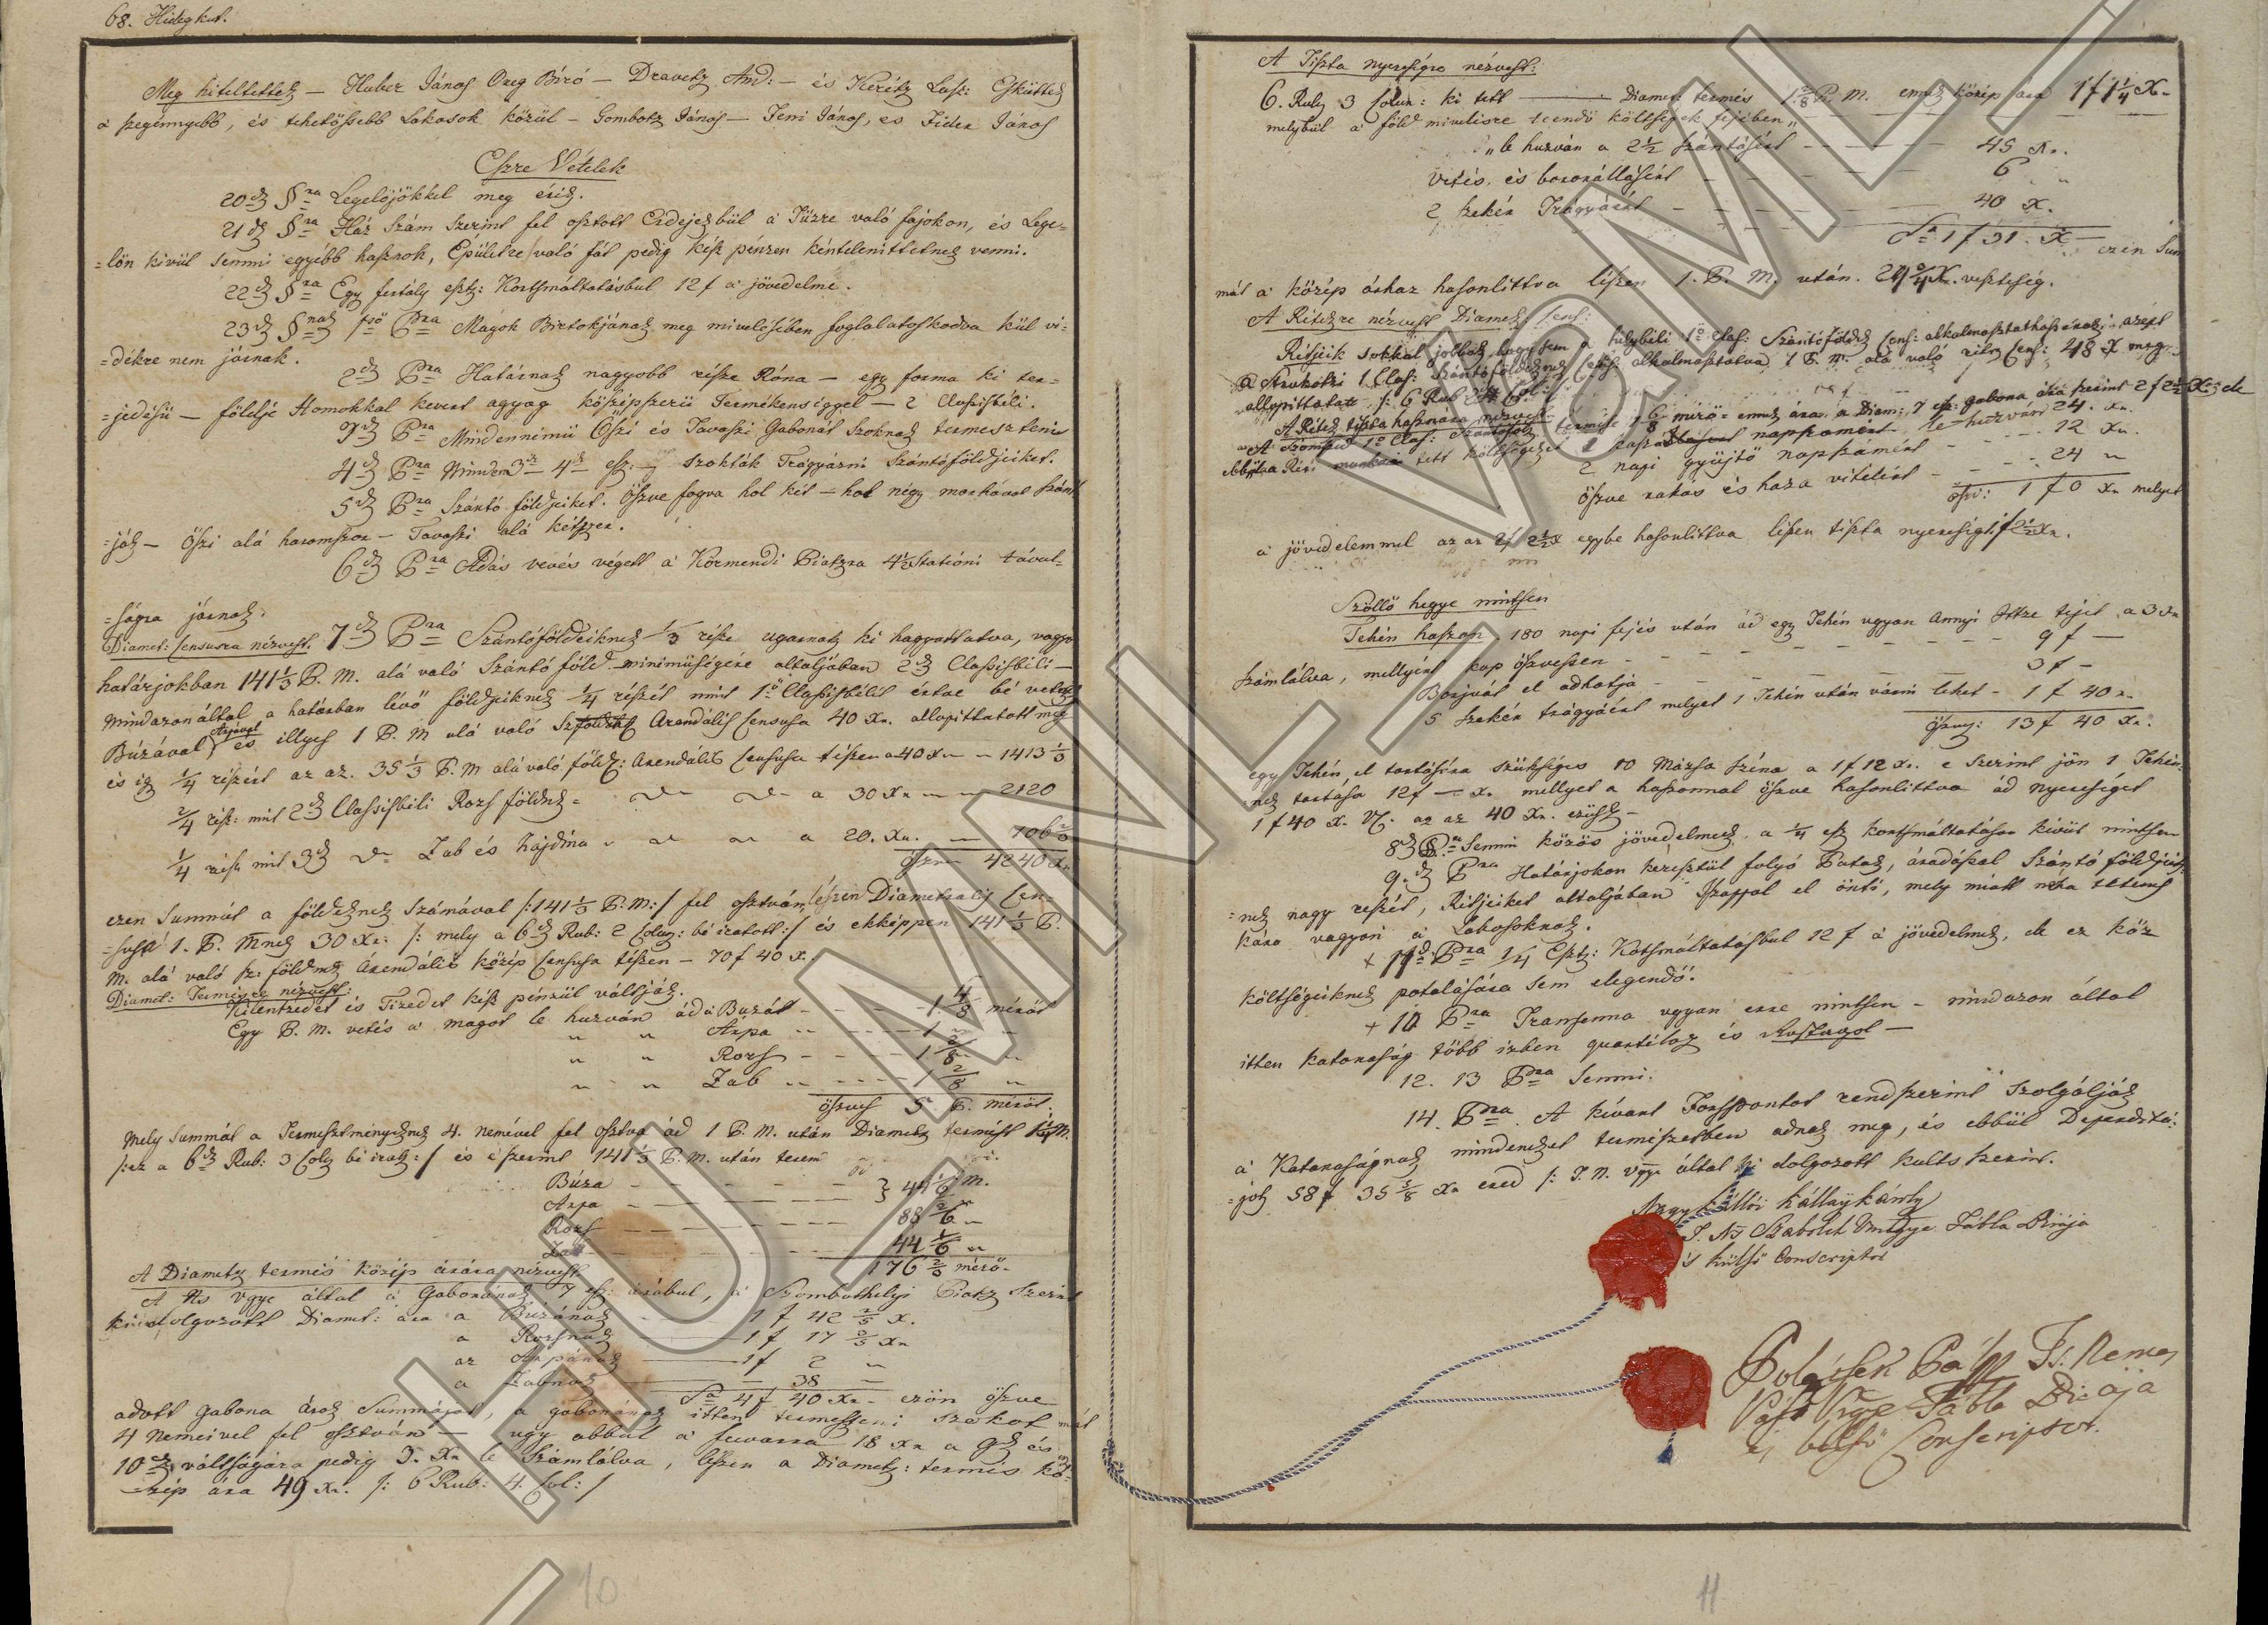 68. Hidegkut.
Meg hiteltettek — Huber János Öreg Bíró — Dravetz And: — és Kerétz Las: Esküttek
a szegénnyebb, és tehetössebb Lakosok közül — Gombotz János — Jeni János, es Fider János
Eszre Vételek
20dik §ra Legelőjökkel meg érik.
21dik §ra Ház Szám Szerint fel osztott Erdejekbül a Tűzre való fajokon, és Lege=
=lőn kivül semmi egyébb hasznok, Epületre való fát pedig kész pénzen kénteleníttetnek venni.
22dik §ra Egy fertály eszt: Kortsmáltatásbul 12 f a jövedelme.
23dik §nak 1ső Pra Magok Birtokjának meg mivelésében foglalatoskodva kül vi=
=dékre nem járnak.
2dik Pra Határnak nagyobb része Róna — egy forma ki ter=
=jedésü — földje Homokkal kevert agyag középszerü Termékenséggel — 2 Classisbéli.
3dik Pra Mindennémü Őszi és Tavaszi Gabonát Szoknak termeszteni
4dik Pra Minden 3dik 4dik esz: — szokták Trágyázni Szántóföldjeiket.
5dik Pra Szántó földjeiket öszve fogva hol két — hol négy marhával szánt
=ják — Őszi alá haromszor — Tavaszi alá kétszer.
6dik Pra Adás vevés végett a Körmendi Piatzra 4½ Statióni távol=
=ságra járnak.
Diamet: Censusra nézvest. 7dik Pra Szántóföldeiknek 1/3 része ugarnak ki hagyattatva, vagyon
határjokban 141 1/3 P. M. alá való Szántó föld — minémüségére általjában 2dik Classisbéli —
mindazonáltal a határban lévő földjeiknek 1/4 részét mint 1ső Classisbélit értve bé vetik
Búzával, Árpával és illyes 1 P. M alá való Szfoldnek Arendális Censusa 40 xr. allapittatott meg
és ig 1/4 részért az az. 35 1/3 P. M alá való földk: Arendális Censusa tészen a 40 x — 1413 1/3
2/4 rész: mit 2dik Classisbéli Rozs földnek — a 30 xr — 2120
1/4 rész mit 3dik Zab és Hajdina — a 20. xr. — 706 2/3
öszv 4240 x
ezen Summát a földeknek Számával /:141 1/3 P.M:/ fel osztván lészen Diametralis Cen=
=susa 1. P. Mnek 30 xr: /: mely a 6dik Rub: 2 Colun: bé iratott:/ és ekképpen 141 1/3 P.
M. alá való sz: földnek Arendális közép Censusa tészen — 70 f 40 x.
Diamet: Termésre nézvest:
Kilentzedet és Tizedet kész pénzül váltják.
Egy P. M. vetés a magot le huzván ád a Buzát — 1 4/8 mérőt
" " Arpa — 1
" " Rozs — 1 2/8 "
" " Zab — 1 2/8 "
öszves 5 P. mérőt.
Mely Summát a Termesztményeknek 4. nemével fel osztva ád 1 P. M. után Diametz termést
/:ez a 6dik Rub: 3 Coln bé iratt:/ és e szerint 141 1/3 P. M. után terem
Búza
Arpa } 44 1/6 M.
Rozs — 88 2/6 —
Zab — 44 1/6 "
176 2/3 mérő.
A Diametz termés közép árára nézvest
A Ns Vgye által a Gabonának 7 esz: árábul, a Szombathelyi Piatz Szerint
ki dolgozott Diamet: ára a Búzának — 1 f 42 2/5 x.
a Rozsnak — 1 f 17 3/5 xr
az Árpának — 1 f 2 "
a Zabnak — 38 —
Sa 4 f 40 xr — ezön öszve
adott Gabona árok Summáját, a gabonának itten termeszteni szokot
4 nemeivel fel osztván — ugy abbúl a fuvarra 18 xr a 9dik és
10dik váltságára pedig 3. xr le Számlálva, lészen a Diametz: termés kö=
=zép ára 49 xr. /: 6 Rub: 4. Col: /
10
A Tiszta nyereségre nézvest:
6. Rub 3 Colun: ki tett — Diamet: termés 1 2/8 P. M. ennek közép ára 1 f 1 1/4 x
melybül a föld mivelésre teendő költségek fejében
"le huzván a 2½ szántásért — 45 xr.
Vetés, és boronállásért — 6 "
2 szekér Trágyáért — 40 x.
Sa 1 f 31. x — ezen Sum
mát a közép árhaz hasonlittva lészen 1. P. M. után. 29 3/4 x. veszteség.
A Rétekre nézvest Diamet: Cens:
Rétjeik sokkal jobbak, hogy sem a helybéli 1ő Clas: Szántóföldek Cens: alkalmaztathassanak; azért
1 P. M. alá való rétnek Cens: 48 x meg
allapittatott /: 6 Rub
A Rétek tiszta hasznára nézvest
le huzván 24. xr.
2 napi gyüjtő napszámért — 12 xr.
öszve rakás és haza vitelért — 24 "
öszv: 1 f 0 xr melyet
a jövedelemmel az az 2 f 2½ x egybe hasonlittva lészen tiszta nyereség 1 f 2½ xr.
Szöllő hegye nintsen
Tehén haszon, 180 napi fejés után ád egy Tehén ugyan annyi Ittze tejet, a 3 xr
számlálva, mellyért kap öszvessen — 9 f —
Borjuát el adhatja — 3 f —
5 szekér trágyáért melyet 1 Tehén után várni lehet — 1 f 40 x
öszveg: 13 f 40 xr.
egy Tehén el tartására szükséges 10 Mázsa széna a 1 f 12 x. e szerint jön 1 Tehén=
nek tartása 12 f — x. mellyet a haszonnal öszve hasonlittva ád nyereséget
1 f 40 x. V. az az 40 xr. ezüstb —
8dik Pra Semmi közös jövedelmek a 1/4 esz kortsmáltatáson kívül nintsen
9.dik Pra Határjokon keresztül folyó Patak, áradással Szántó földjeik=
=nek nagy részét, Rétjeiket általjában Iszappal el önti, mely miatt néha tetemes
kára vagyon a Lakosoknak.
+ 11dik Pra 1/4 Eszt: Kotsmáltatásbul 12 f a jövedelmek, de ez köz
költségeiknek potolására sem elegendő.
+ 10 Pra Transenna ugyan erre nintsen — mindazon által
itten katonaság több izben quartéloz és Rastagol —
12. 13 Pra Semmi.
14. Pra. A kívánt Forspontot rendszerint Szolgálják
a Katonaságnak mindeneket természetben adnak meg, és ebbül Deperditá:
=jok 58 f 35 3/8 xr ered /: T. N. Vgye által ki dolgozott kults szerint.
Nagy Kállói Kállay Károly
T. Ns Szabolch Vmegye Tábla Birája
s külső Conscriptor
Ts. Nemes
Vas Vgye Tábla Birája
és belső Conscriptor.
11
HU MNL VSML